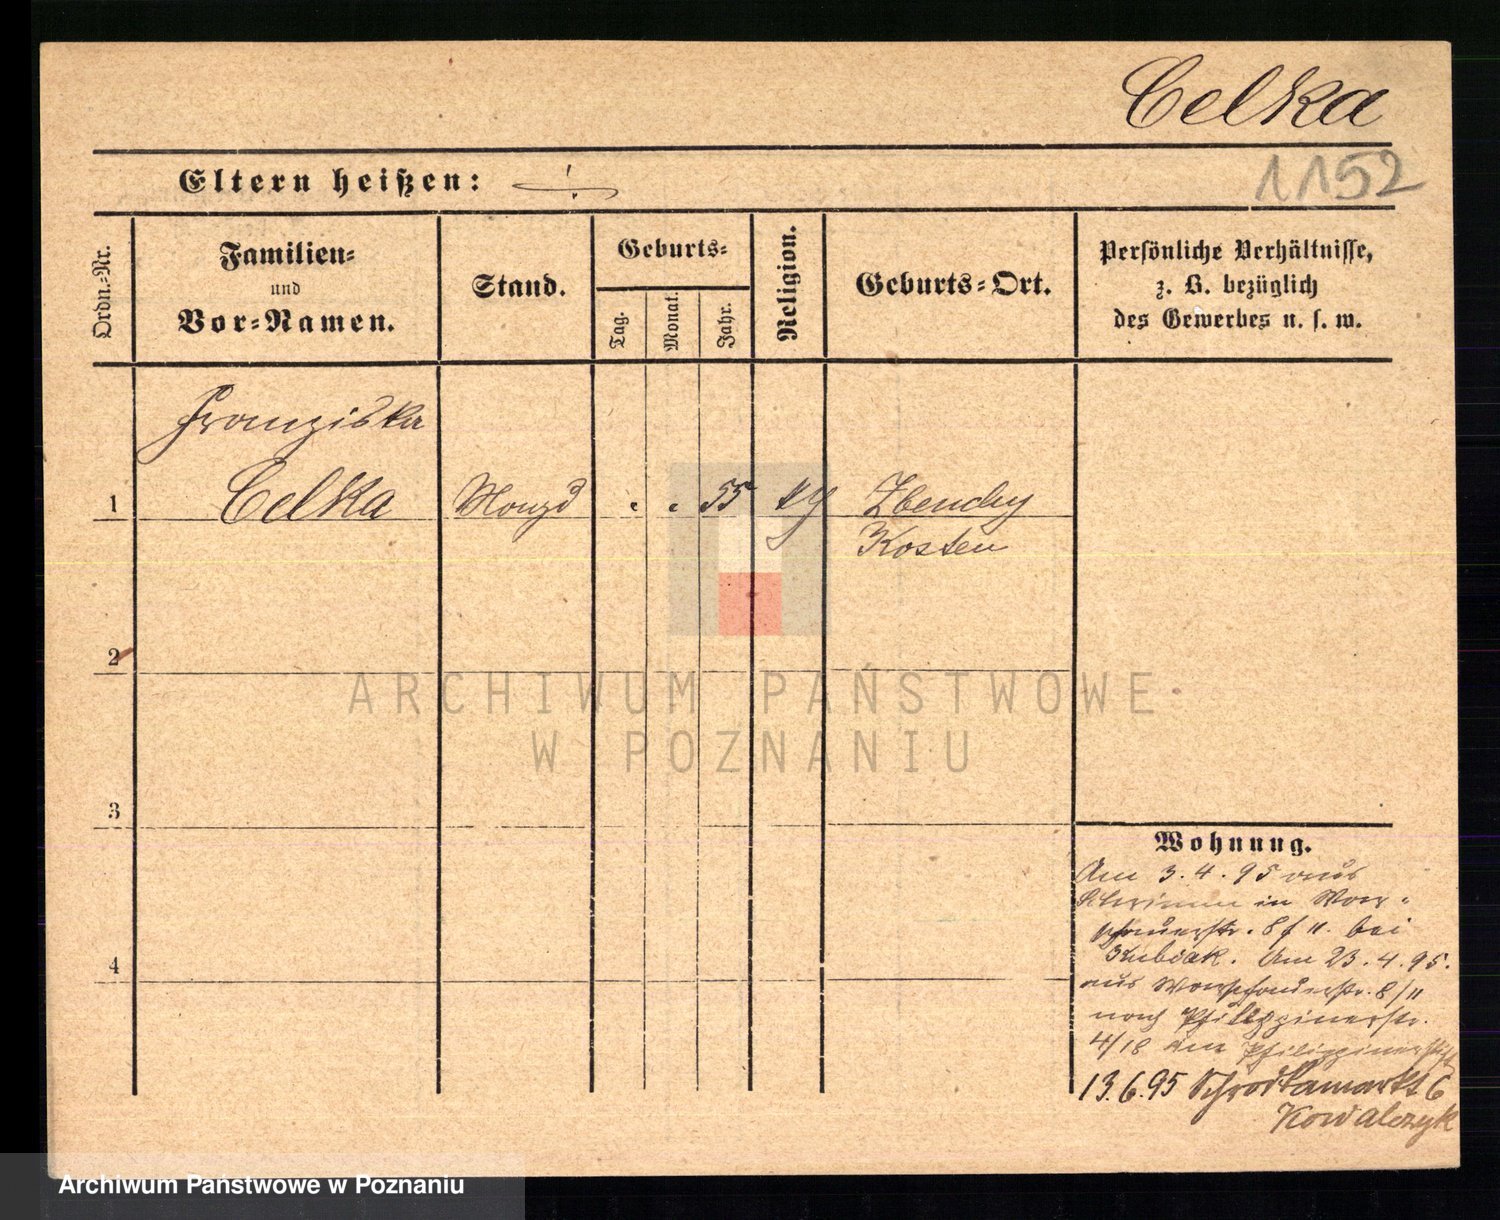 Celka
1152
Eltern heißen: ÷
Ordn.-Nr.
Familien-
und
Vor-Namen.
Stand.
Geburts-
Tag.
Monat.
Jahr.
Religion.
Geburts-Ort.
Persönliche Verhältnisse,
z. B. bezüglich
des Gewerbes u. s. w.
Franziska
1 Celka Magd " " 55 kg Zbenchy
Kosten
2
3
4
ARCHIWUM PAŃSTWOWE
W POZNANIU
Wohnung.
Am 3.4.95 aus
Schrimm in War-
schauerstr. 8/11. bei
Kubiak. Am 23.4.95.
aus Warschauerstr. 8/11
nach Philippinerstr.
4/18 Philippinerstr.
13.6.95 Schrodkamarkt 6
Kowalczyk
Archiwum Państwowe w Poznaniu